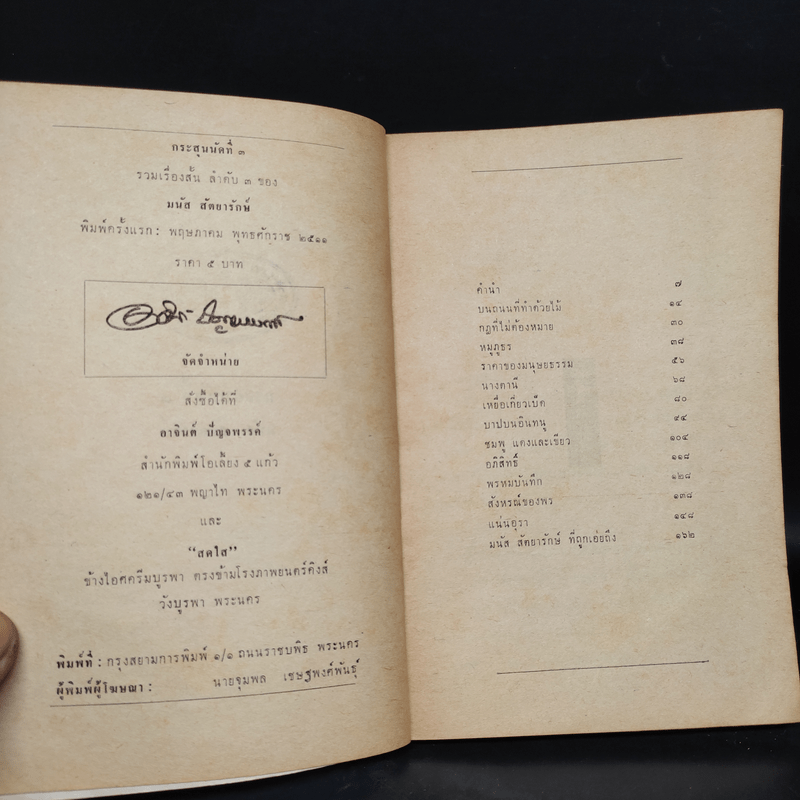 กระสุนนัดที่ ๓
รวมเรื่องสั้น ลำดับ ๓ ของ
มนัส สัตยารักษ์
พิมพ์ครั้งแรก: พฤษภาคม พุทธศักราช ๒๕๑๑
ราคา ๕ บาท
จัดจำหน่าย
สั่งซื้อได้ที่
อาจินต์ ปัญจพรรค์
สำนักพิมพ์โอเลี้ยง ๕ แก้ว
๑๒๑/๔๓ พญาไท พระนคร
และ
"สดใส"
ข้างไอศครีมบูรพา ตรงข้ามโรงภาพยนตร์คิงส์
วังบูรพา พระนคร
พิมพ์ที่: กรุงสยามการพิมพ์ ๑/๑ ถนนราชบพิธ พระนคร
ผู้พิมพ์ผู้โฆษณา: นายจุมพล เชษฐพงศ์พันธุ์
คำนำ ๗
บนถนนที่ทำด้วยไม้ ๑๔
กฎที่ไม่ต้องหมาย ๓๐
หมูภูธร ๓๘
ราคาของมนุษยธรรม ๕๖
นางตานี ๖๘
เหยื่อเกี่ยวเบ็ด ๘๐
บาปบนอินทนู ๙๔
ชมพู แดงและเขียว ๑๐๔
อภิสิทธิ์ ๑๑๘
พรหมบันทึก ๑๒๘
สังหรณ์ของพร ๑๓๘
แน่นอุรา ๑๔๘
มนัส สัตยารักษ์ ที่ถูกเอ่ยถึง ๑๖๒